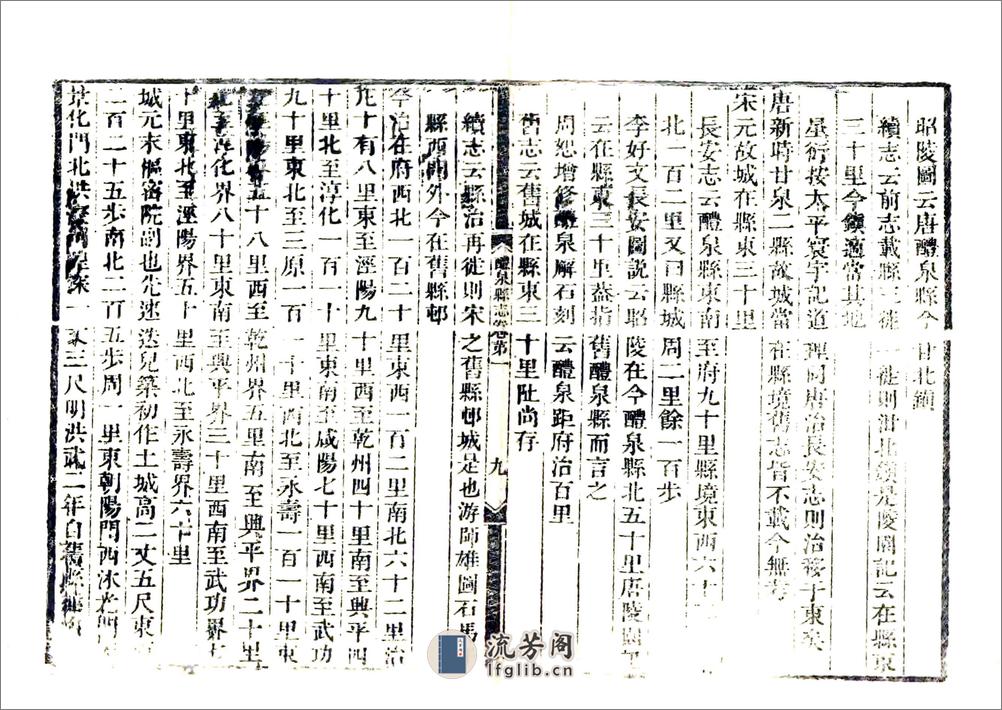 昭陵圖云唐醴泉縣今甘北鎮
續志云前志載縣三徙一徙則泔北鎮是陵圖記云在縣東
三十里今鎮適當其地
星衍按太平寰宇記道里同唐治長安志則治移于東矣
唐新時甘泉二縣故城當在縣境舊志皆不載今無考
宋元故城在縣東三十里
長安志云醴泉縣東南至府九十里縣境東西六十
北一百二里又曰縣城周二里餘一百步
李好文長安圖說云昭陵在今醴泉縣北五十里唐陵圖
云在縣東三十里葢指舊醴泉縣而言之
周恕增修醴泉廨石刻云醴泉距府治百里
舊志云舊城在縣東三十里阯尚存
醴泉縣志卷第一 九
續志云縣治再徙則宋之舊縣邨城是也游師雄圖石馬
縣西門外今在舊縣邨
今治在府西北一百二十里東西一百二里南北六十二里治
九十有八里東至涇陽九十里西至乾州四十里南至興平四
十里北至淳化一百一十里東南至咸陽七十里西南至武功
九十里東北至三原一百一十里西北至永壽一百一十里東
五十八里西至乾州界五里南至興平界二十里
北至淳化界八十里東南至興平界三十里西南至武功界七
十里東北至涇陽界五十里西北至永壽界六十里
城元末樞密院副也先速迭兒築初作土城高二丈五尺東西
二百二十五步南北二百五步周一里東朝陽門西沐
景化門北洪 深一丈三尺明洪武二年自舊縣
流芳阁
lfglib.cn